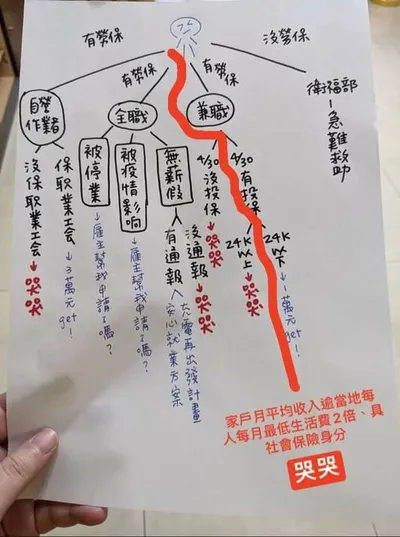 有勞保
沒勞保
有勞保
有勞保
自營
作業者
沒保職業工會
→哭哭
保職業工會
→3萬元get!
主職
被停業
→雇主幫我申請了嗎?
被疫情影響
→雇主幫我申請了嗎?
無薪假
有通報
安心就業方案
充電再出發計畫
沒通報
→哭哭
兼職
4/30
沒投保
→哭哭
4/30
有投保
24K
以上
→哭哭
24K
以下
→1萬元get!
衛福部
-急難救助
家戶月平均收入逾當地每
人每月最低生活費2倍、具
社會保險身分
哭哭